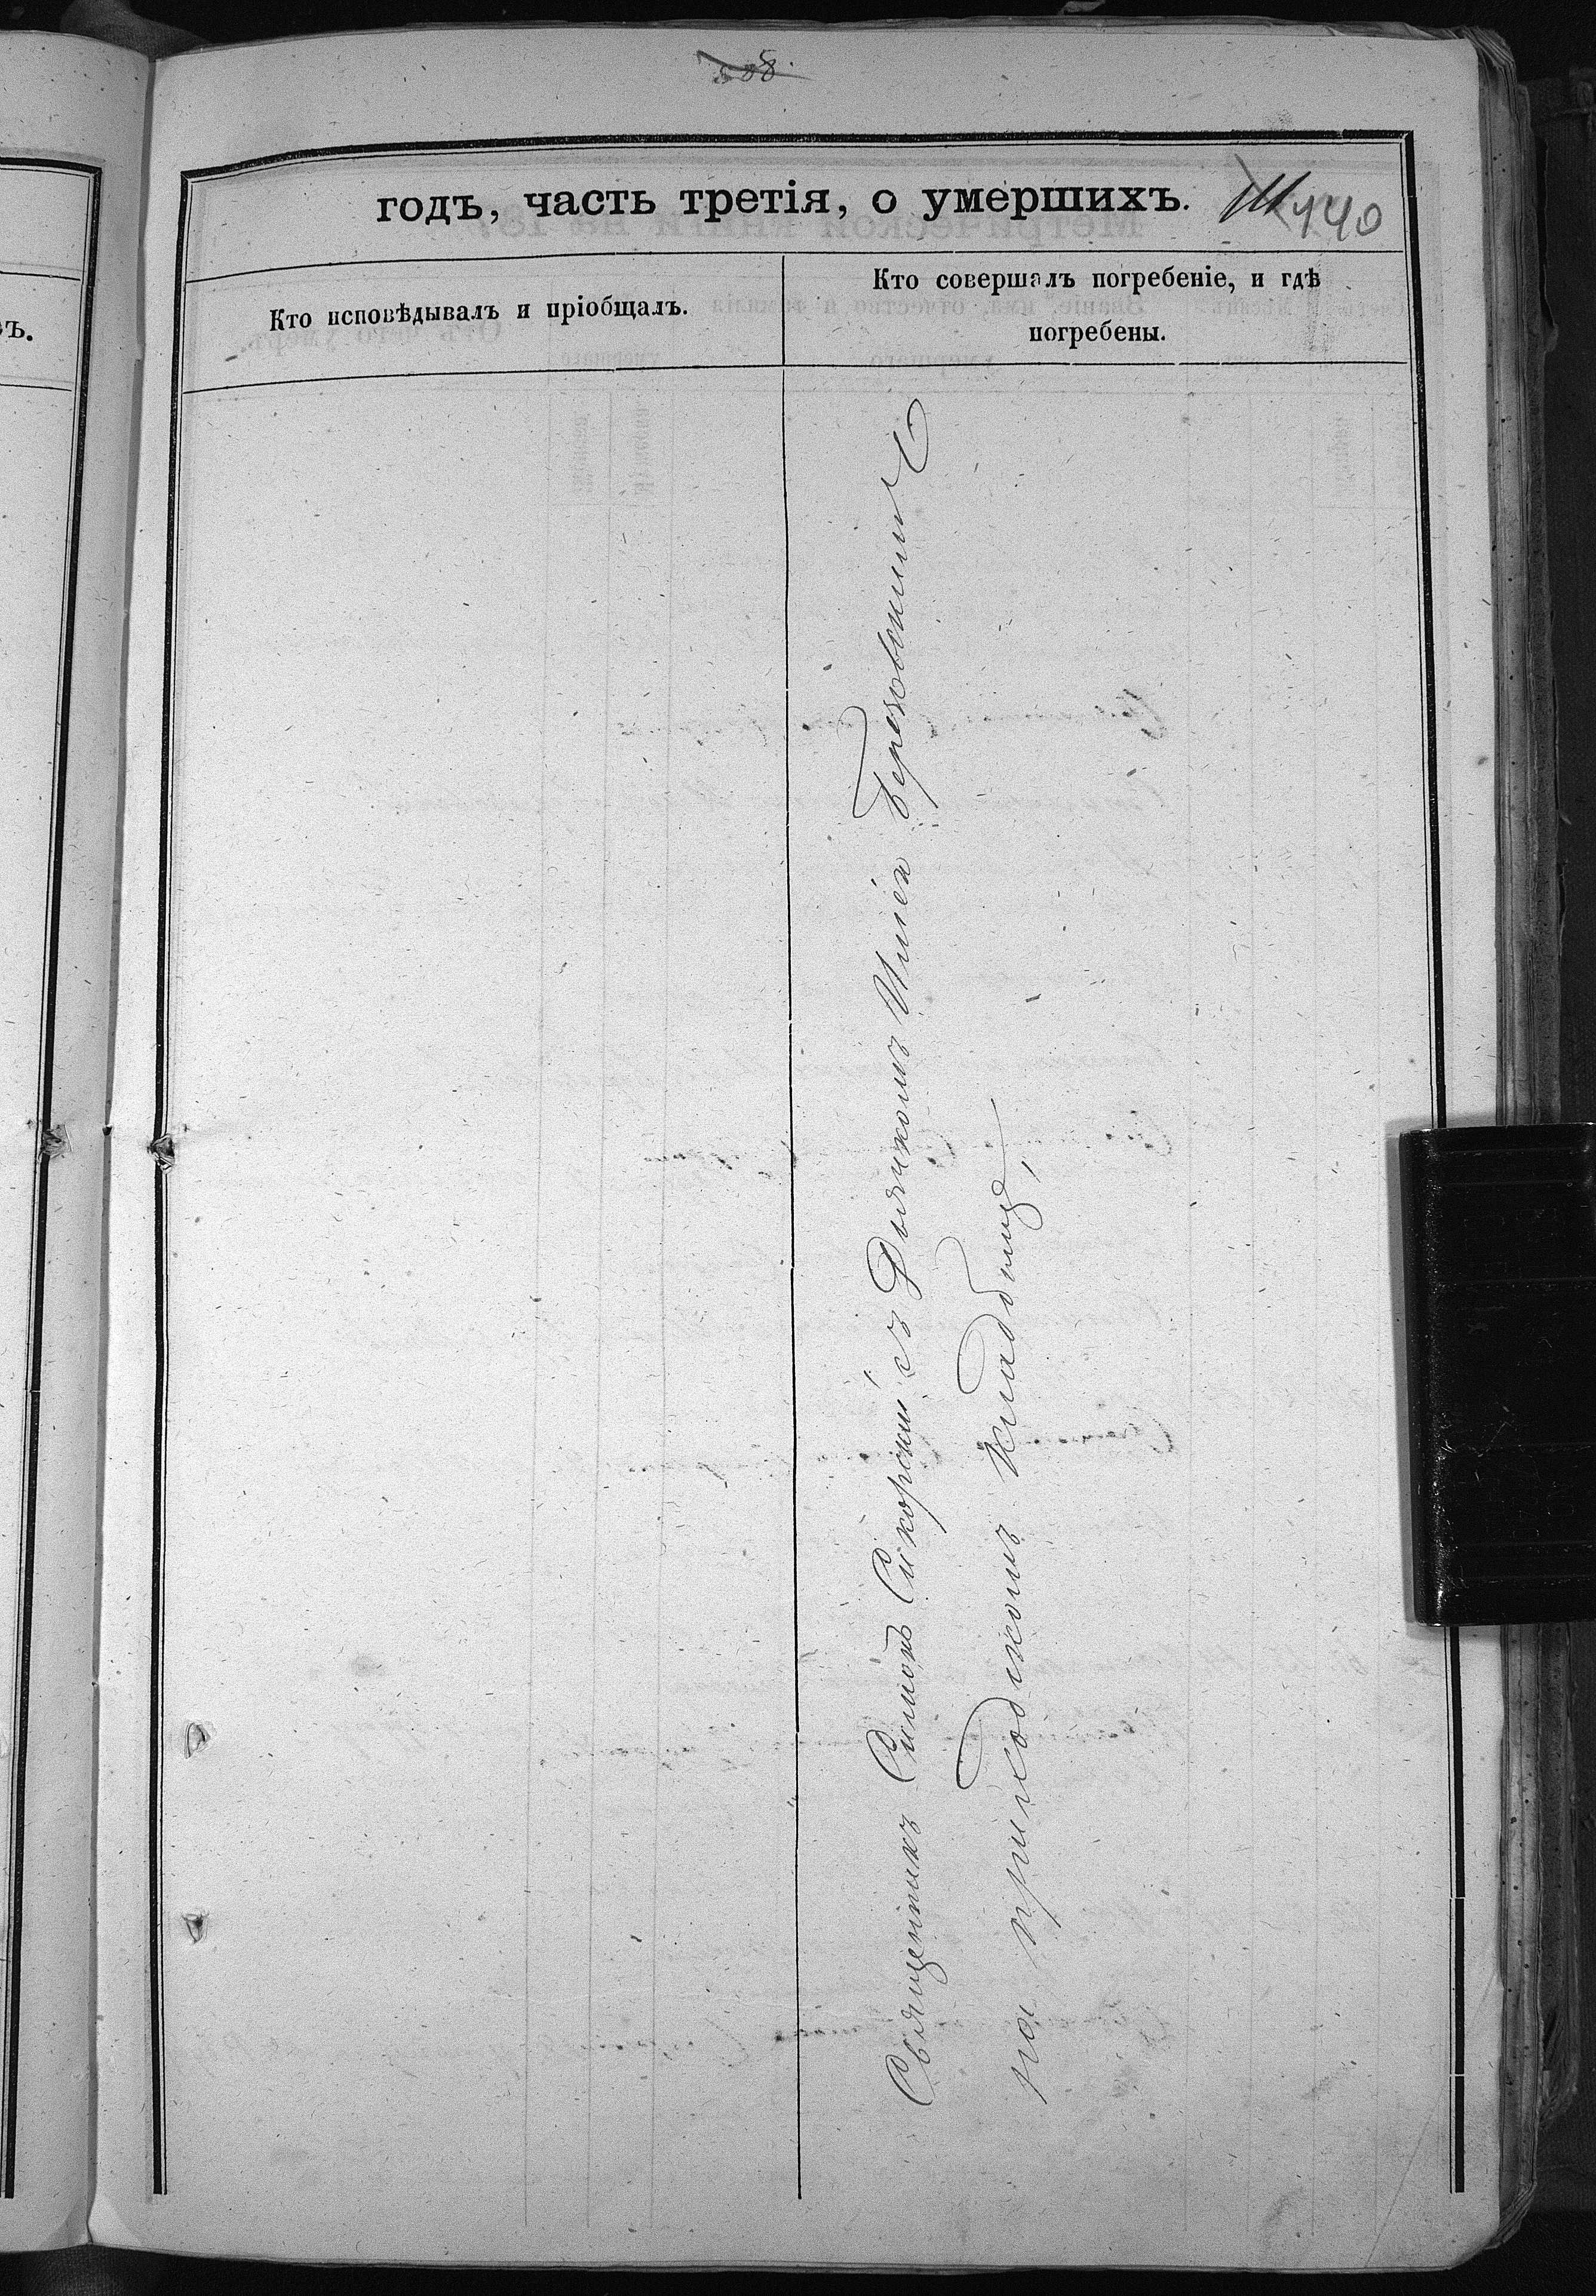 508.
годъ, часть третія, о умершихъ.
140
Кто исповѣдывалъ и пріобщалъ.
Кто совершалъ погребеніе, и гдѣ
погребены.
Священникъ Симонъ Сикорскій съ Дьячкомъ Иліею Березовскимъ
на приходскомъ кладбищѣ